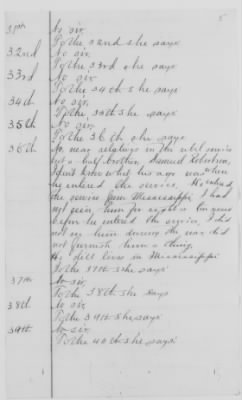 5
31st
No sir.
To the 32nd she says
32nd
No sir.
To the 33rd she says
33rd
No sir
To the 34th she says
34th
No sir.
To the 35th she says
35th
No sir.
To the 36th she says
36th
No near relatives in the rebel service
but a half brother, Samuel Robertson,
I dont know what his age was when
he entered the service. He entered
the service from Mississippi. I had
not seen him for eight or ten years
before he entered the service, I did
not see him during the war, did
not furnish him a thing.
He still lives in Mississippi
To the 37th she says
37th
No sir.
To the 38th she says
38th
No sir
To the 39th she says
39th
No sir.
To the 40th she says